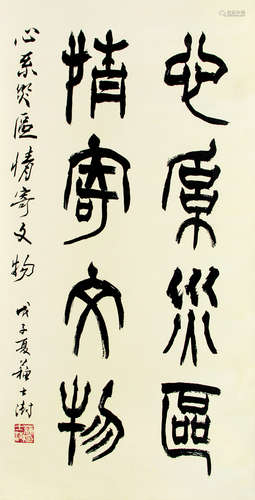 心系災區
情寄文物
心系災區情寄文物
戊子夏蘇士澍